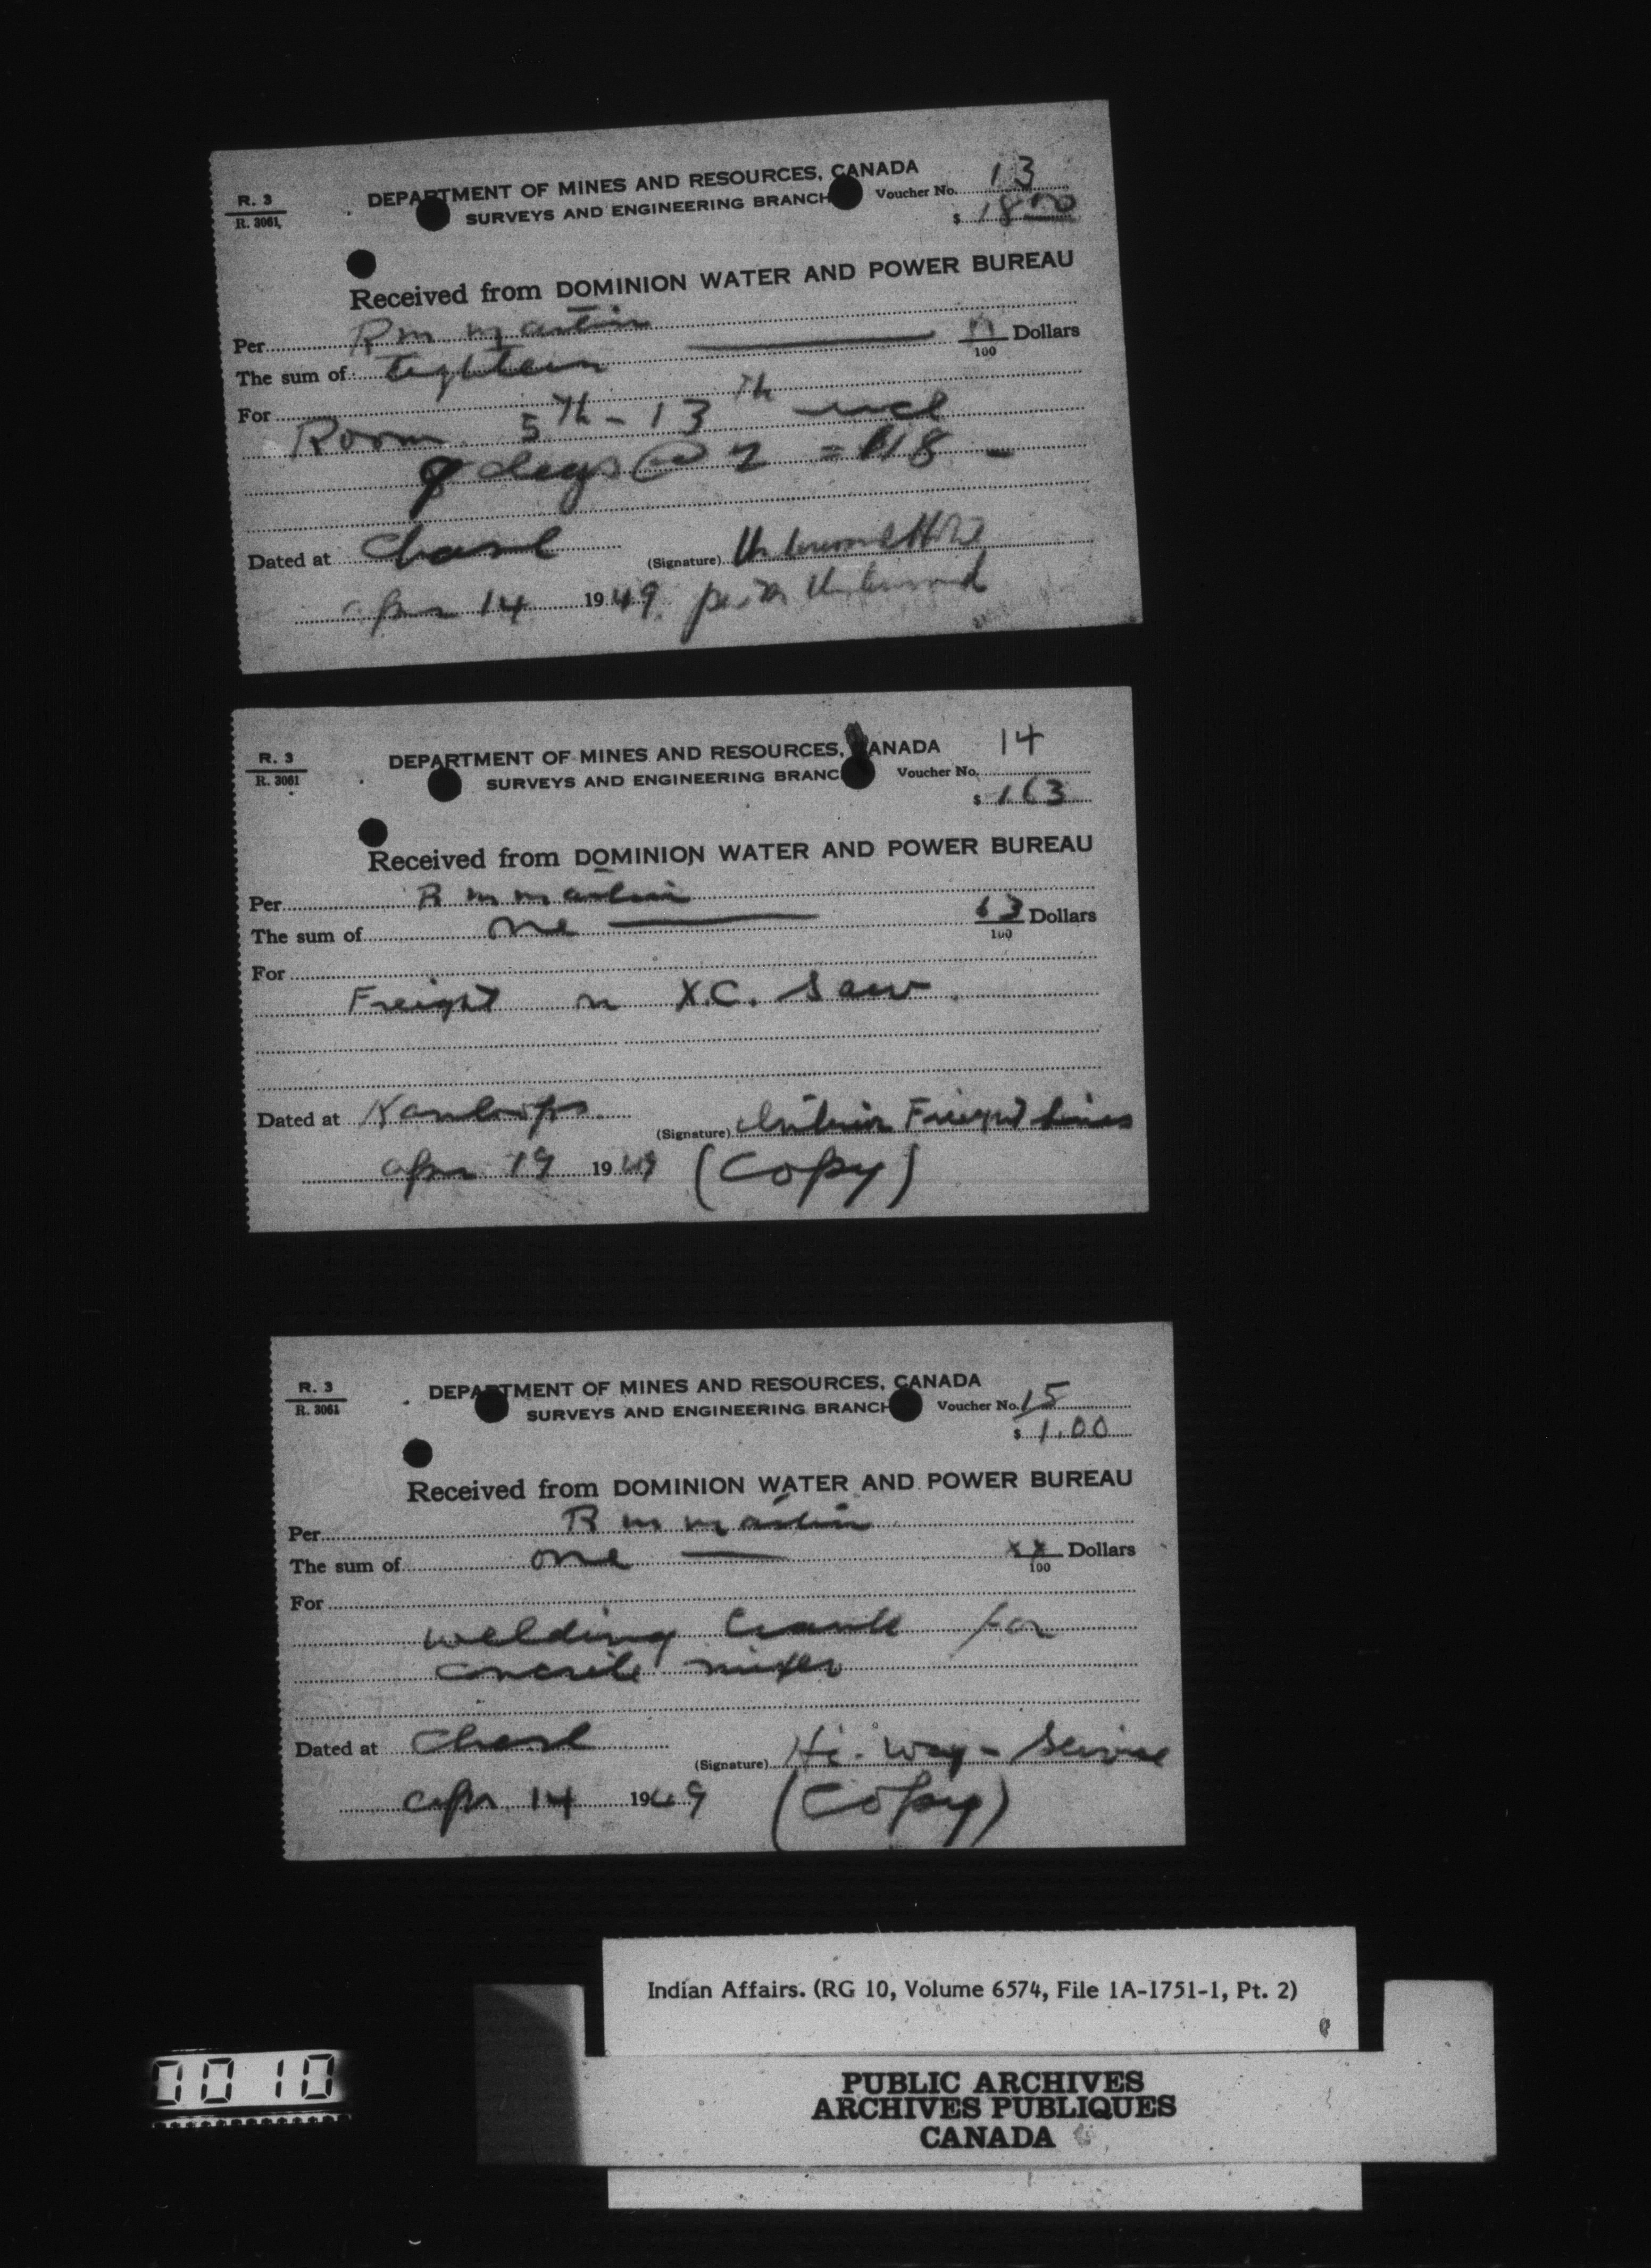 R. 3
R. 3061
DEPARTMENT OF MINES AND RESOURCES, CANADA
SURVEYS AND ENGINEERING BRANCH
Voucher No. 13
$ 18.00
Received from DOMINION WATER AND POWER BUREAU
Per R m martin
The sum of eighteen 100 Dollars
For
Room 5th - 13th incl
9 days @ 2 = 18 -
Dated at Chase
(Signature)
apr 14 1949 per
R. 3
R. 3061
DEPARTMENT OF MINES AND RESOURCES, CANADA
SURVEYS AND ENGINEERING BRANCH
Voucher No. 14
$ 1.63
Received from DOMINION WATER AND POWER BUREAU
Per R m martin
The sum of one 63/100 Dollars
For
Freight on X.C. saw.
Dated at Kamloops
(Signature) Interior Freight Lines
apr 19 1949 (Copy)
R. 3
R. 3061
DEPARTMENT OF MINES AND RESOURCES, CANADA
SURVEYS AND ENGINEERING BRANCH
Voucher No. 15
$ 1.00
Received from DOMINION WATER AND POWER BUREAU
Per R m martin
The sum of one xx/100 Dollars
For
welding crank for
concrete mixer
Dated at Chase
(Signature) Hi-Way-Service
apr 14 1949 (Copy)
Indian Affairs. (RG 10, Volume 6574, File 1A-1751-1, Pt. 2)
PUBLIC ARCHIVES
ARCHIVES PUBLIQUES
CANADA
0010